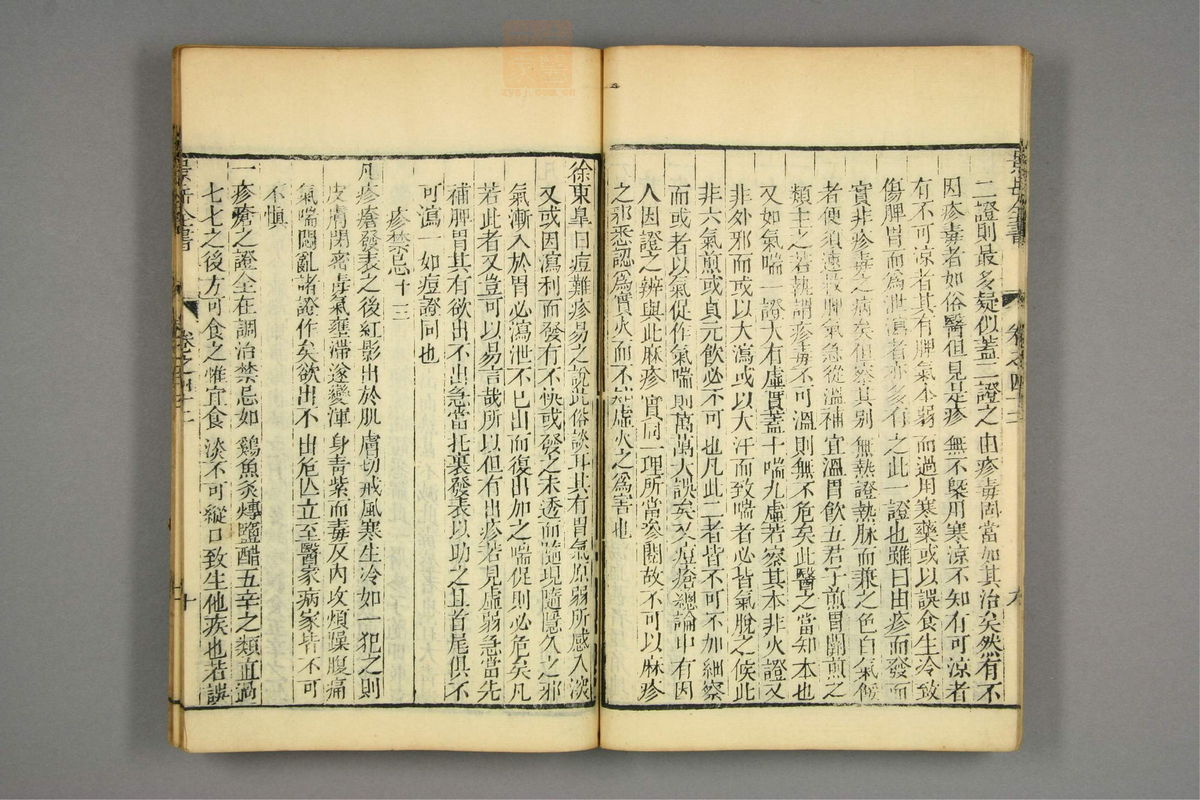 景岳全書
卷之四十三
九
二證則最多疑似蓋二證之由疹毒固當加其治矣然有不
因疹毒者如俗醫但見是疹無不槩用寒涼不知有可涼者
有不可涼者其有脾氣本弱而過用寒藥或以誤食生冷致
傷脾胃而爲泄瀉者亦多有之此一證也雖曰由疹而發而
實非疹毒之病矣但察其別無熱證熱脉而兼之色白氣餒
者便須速救脾氣急從溫補宜溫胃飲五君子煎胃關煎之
類主之若執謂疹毒不可溫則無不危矣此醫之當知本也
又如氣喘一證大有虛實蓋十喘九虛若察其本非火證又
非外邪而或以大瀉或以大汗而致喘者必皆氣脫之候此
非六氣煎或貞元飲必不可也凡此二者皆不可不加細察
而或者以氣促作氣喘則萬萬大誤矣又痘瘡總論中有因
人因證之辨與此麻疹實同一理所當參閱故不可以麻疹
之邪悉認爲實火而不知虛火之爲害也
徐東皐曰痘難疹易之說此俗談耳其有胃氣原弱所感入深
又或因瀉利而發有不快或發之未透而隨現隨隱久之邪
氣漸入於胃必瀉泄不已出而復出加之喘促則必危矣凡
若此者又豈可以易言哉所以但有出疹若見虛弱急當先
補脾胃其有欲出不出急當托裏發表以助之且首尾俱不
可瀉一如痘證同也
疹禁忌十三
凡疹瘡發表之後紅影出於肌膚切戒風寒生冷如一犯之則
皮膚閉密毒氣壅滯遂變渾身青紫而毒反內攻煩躁腹痛
氣喘悶亂諸證作矣欲出不出危亾立至醫家病家皆不可
不愼
一疹瘡之證全在調治禁忌如雞魚炙煿鹽醋五辛之類直過
七七之後方可食之惟宜食淡不可縱口致生他疾也若誤
景岳全書
卷之四十三
十
zysj.com.cn